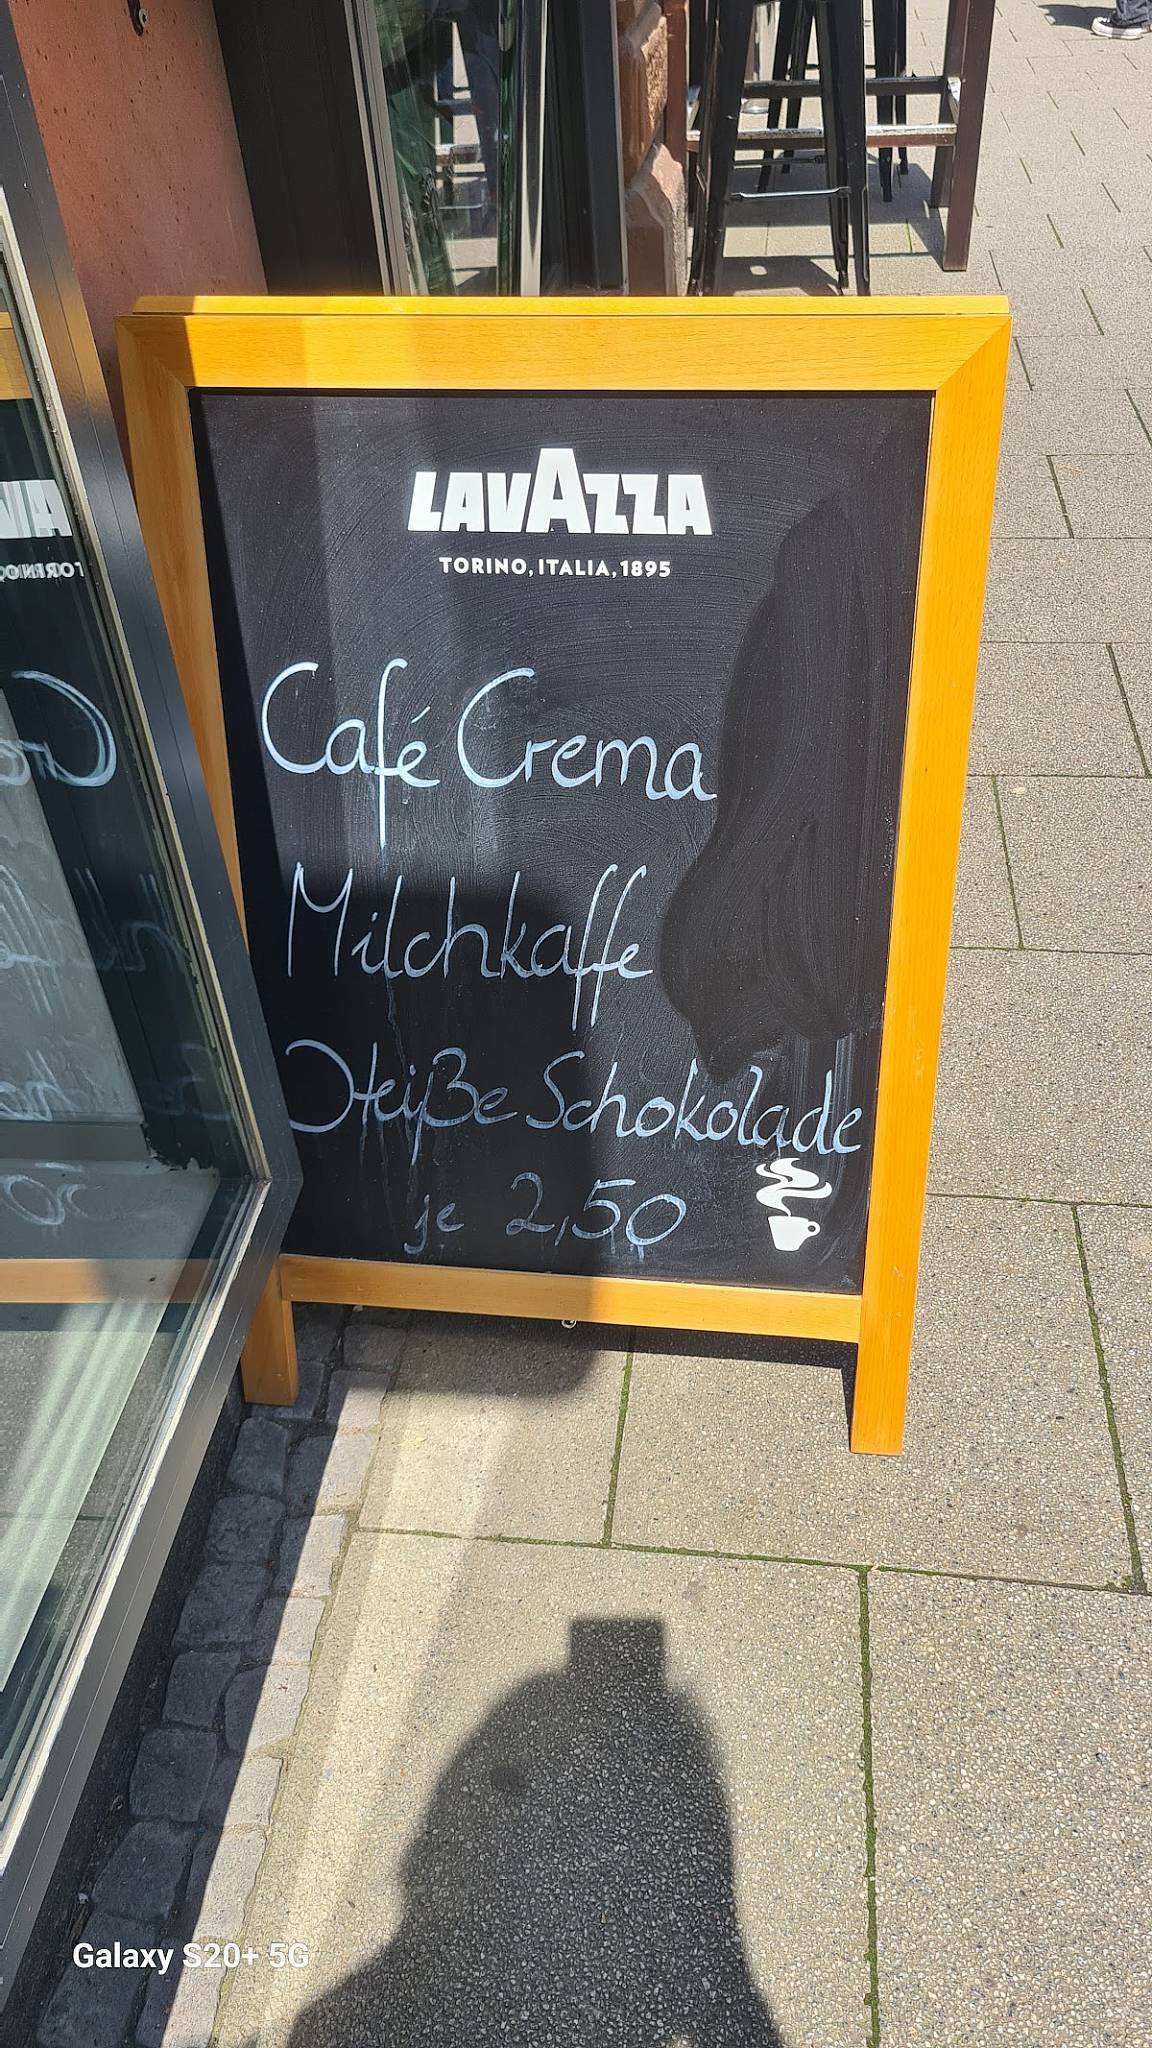 LAVAZZA
TORINO, ITALIA, 1895
Café Crema
Milchkaffe
Heiße Schokolade
je 2,50
Galaxy S20+ 5G